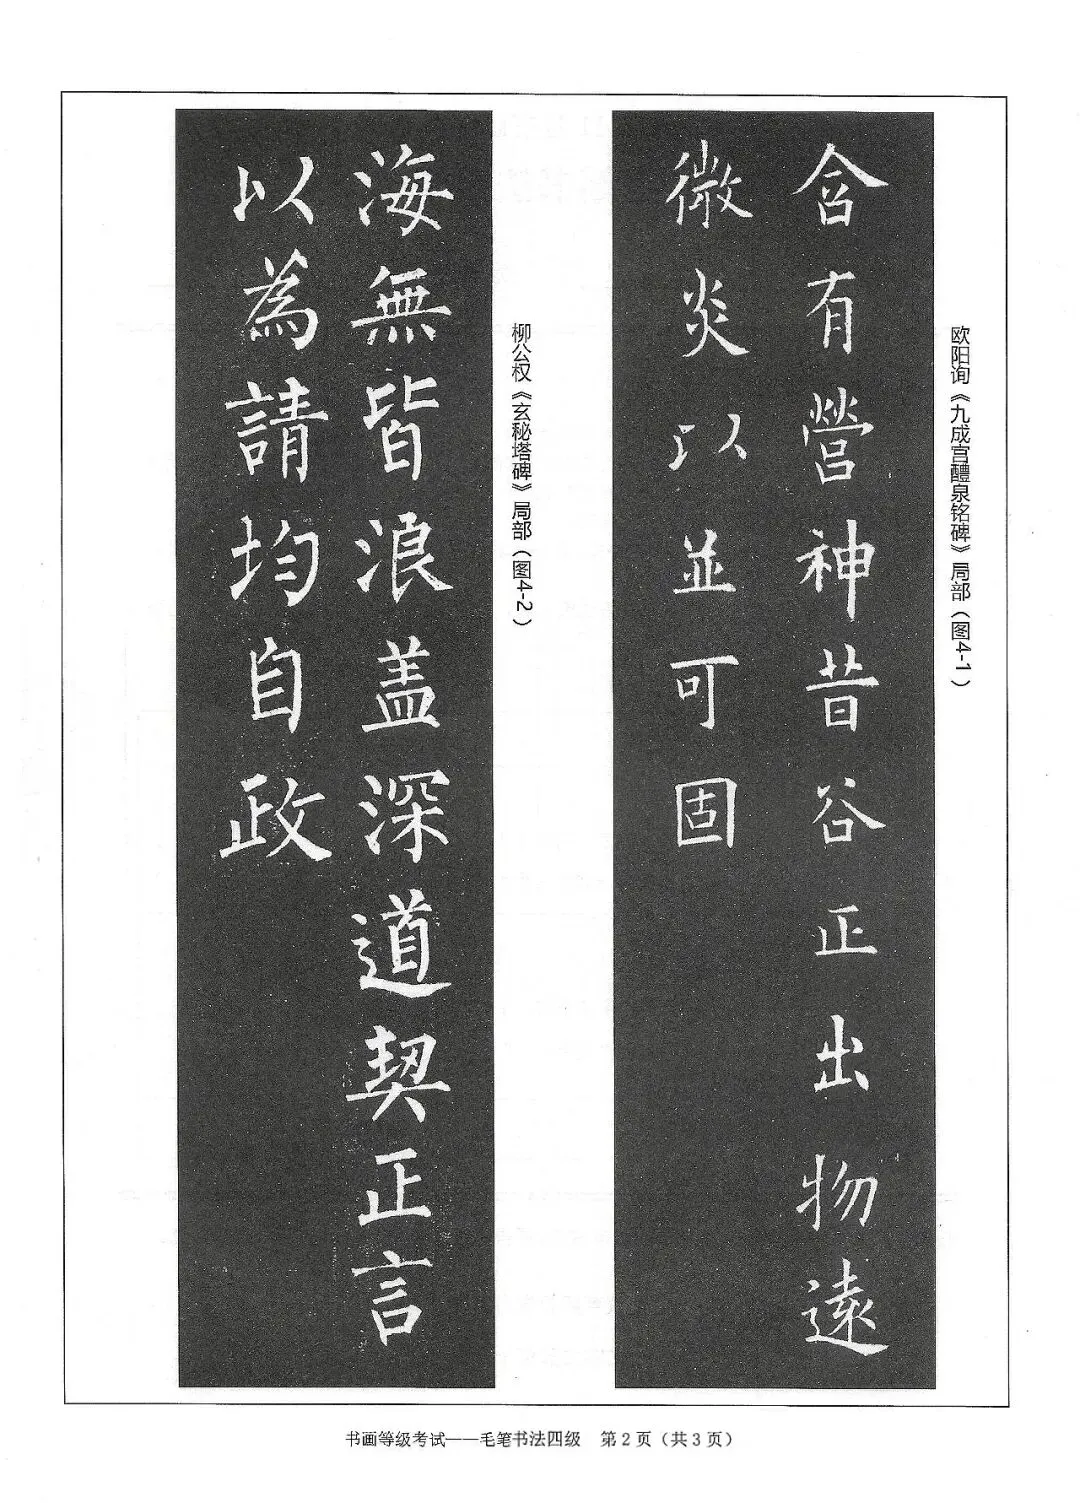 欧阳询《九成宫醴泉铭碑》局部（图4-1）
含有營神昔谷正出物遠
微炎以並可固
柳公权《玄秘塔碑》局部（图4-2）
海無皆浪盖深道契正言
以為請均自政
书画等级考试——毛笔书法四级 第2页（共3页）